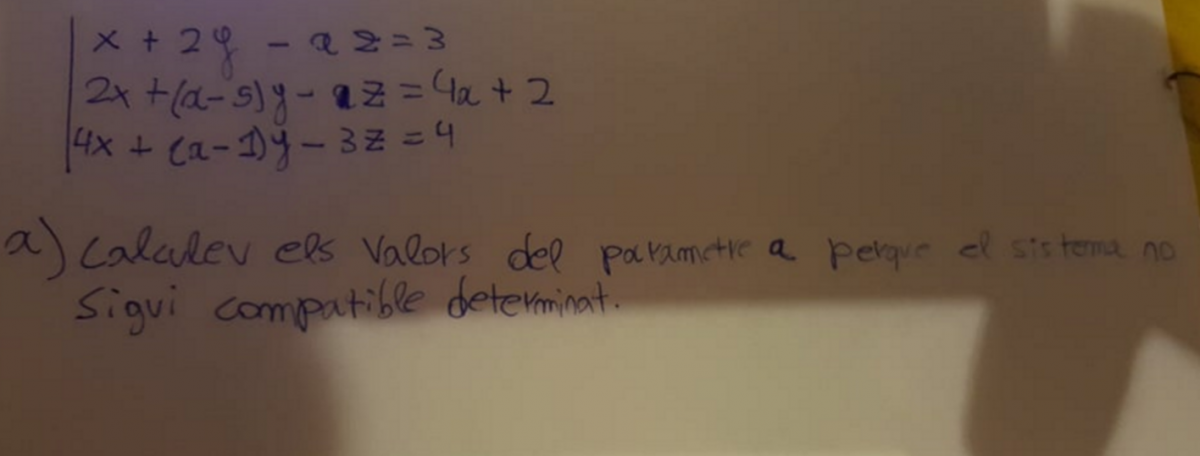 x + 2y - az = 3
2x + (a-5)y - az = 4a + 2
4x + (a-1)y - 3z = 4
a) Calculeu els valors del parametre a perque el sistema no
sigui compatible determinat.